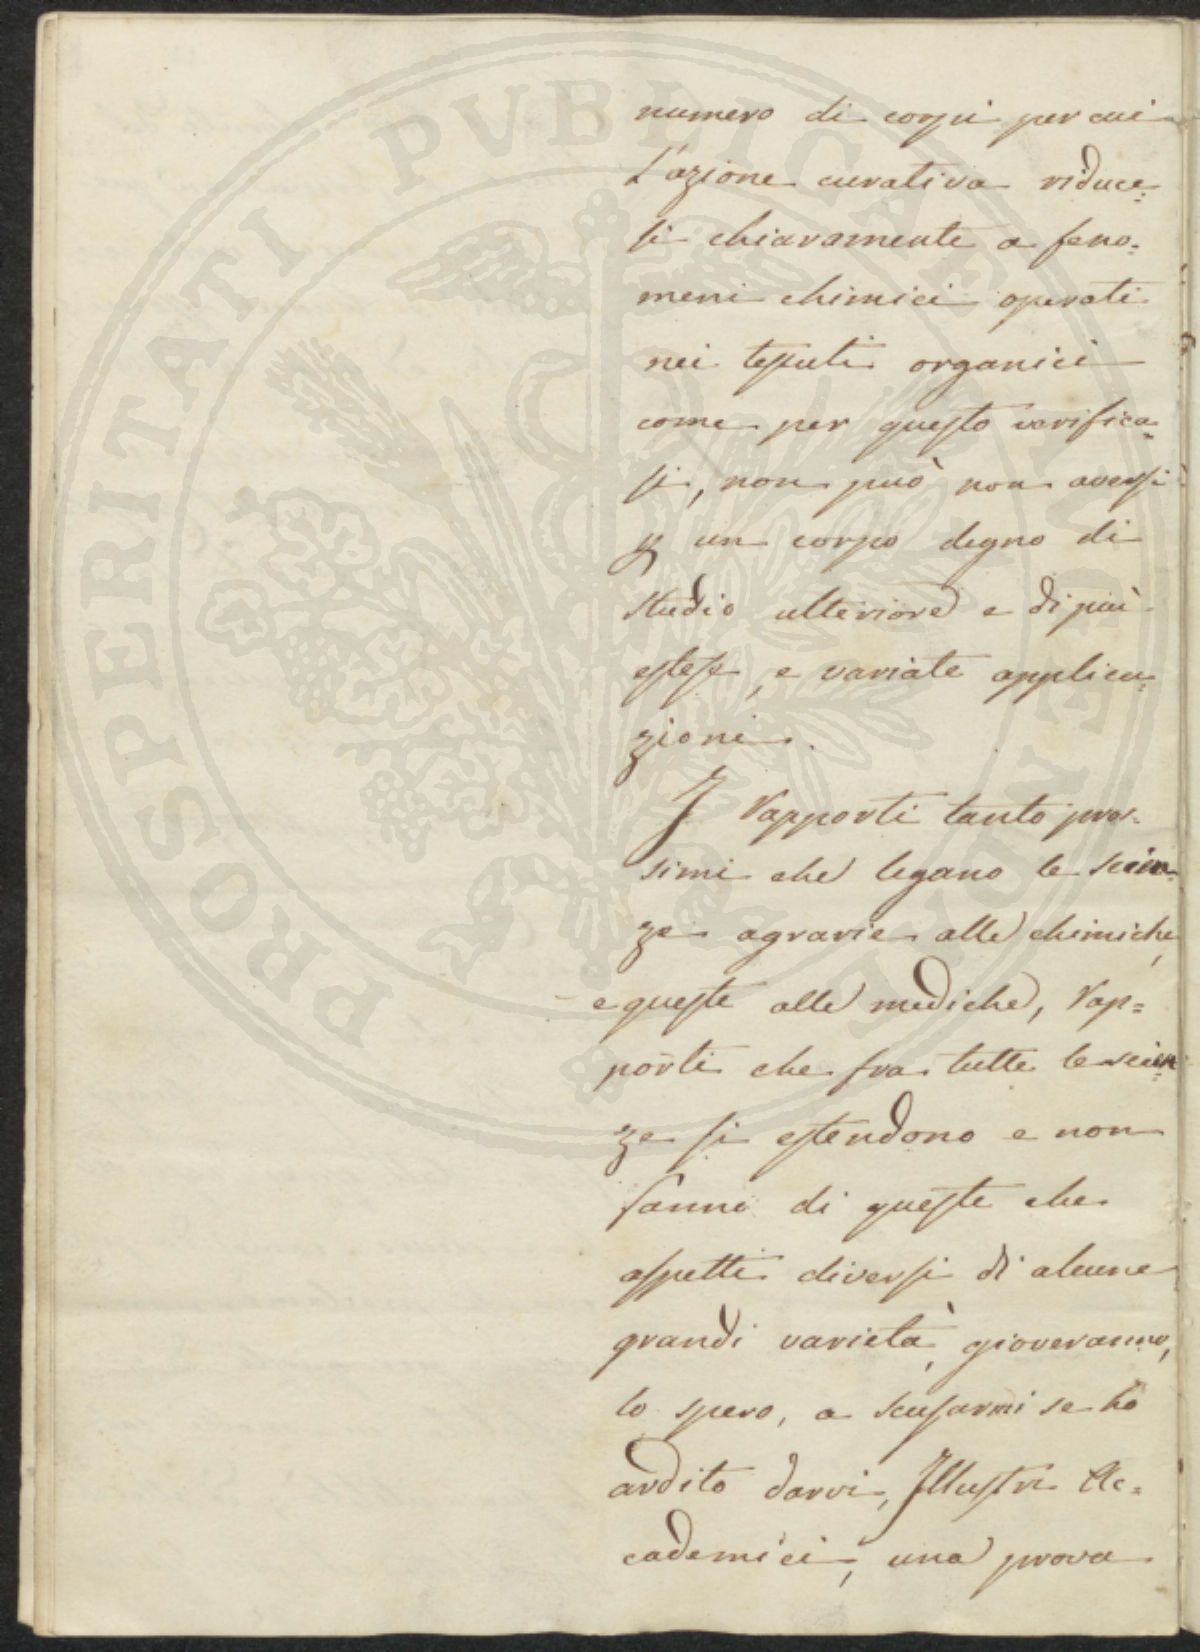 PROSPERITATI PVBLICAE AVGENDAE
numero di corpi per cui
l'azione curativa riduce=
si chiaramente a feno=
meni chimici operati
nei tessuti organici
come per questo verifica=
si, non può non aversi
p un corpo degno di
studio ulteriore e di più
estese, e variate applica=
zioni.
I rapporti tanto pros=
simi che legano le scien=
ze agrarie alle chimiche,
e queste alle mediche, rap=
porti che fra tutte le scien=
ze si estendono e non
fanno di queste che
aspetti diversi di alcune
grandi varietà, gioveranno,
lo spero, a scusarmi se ho
ardito darvi, Illustri Ac=
cademici, una prova